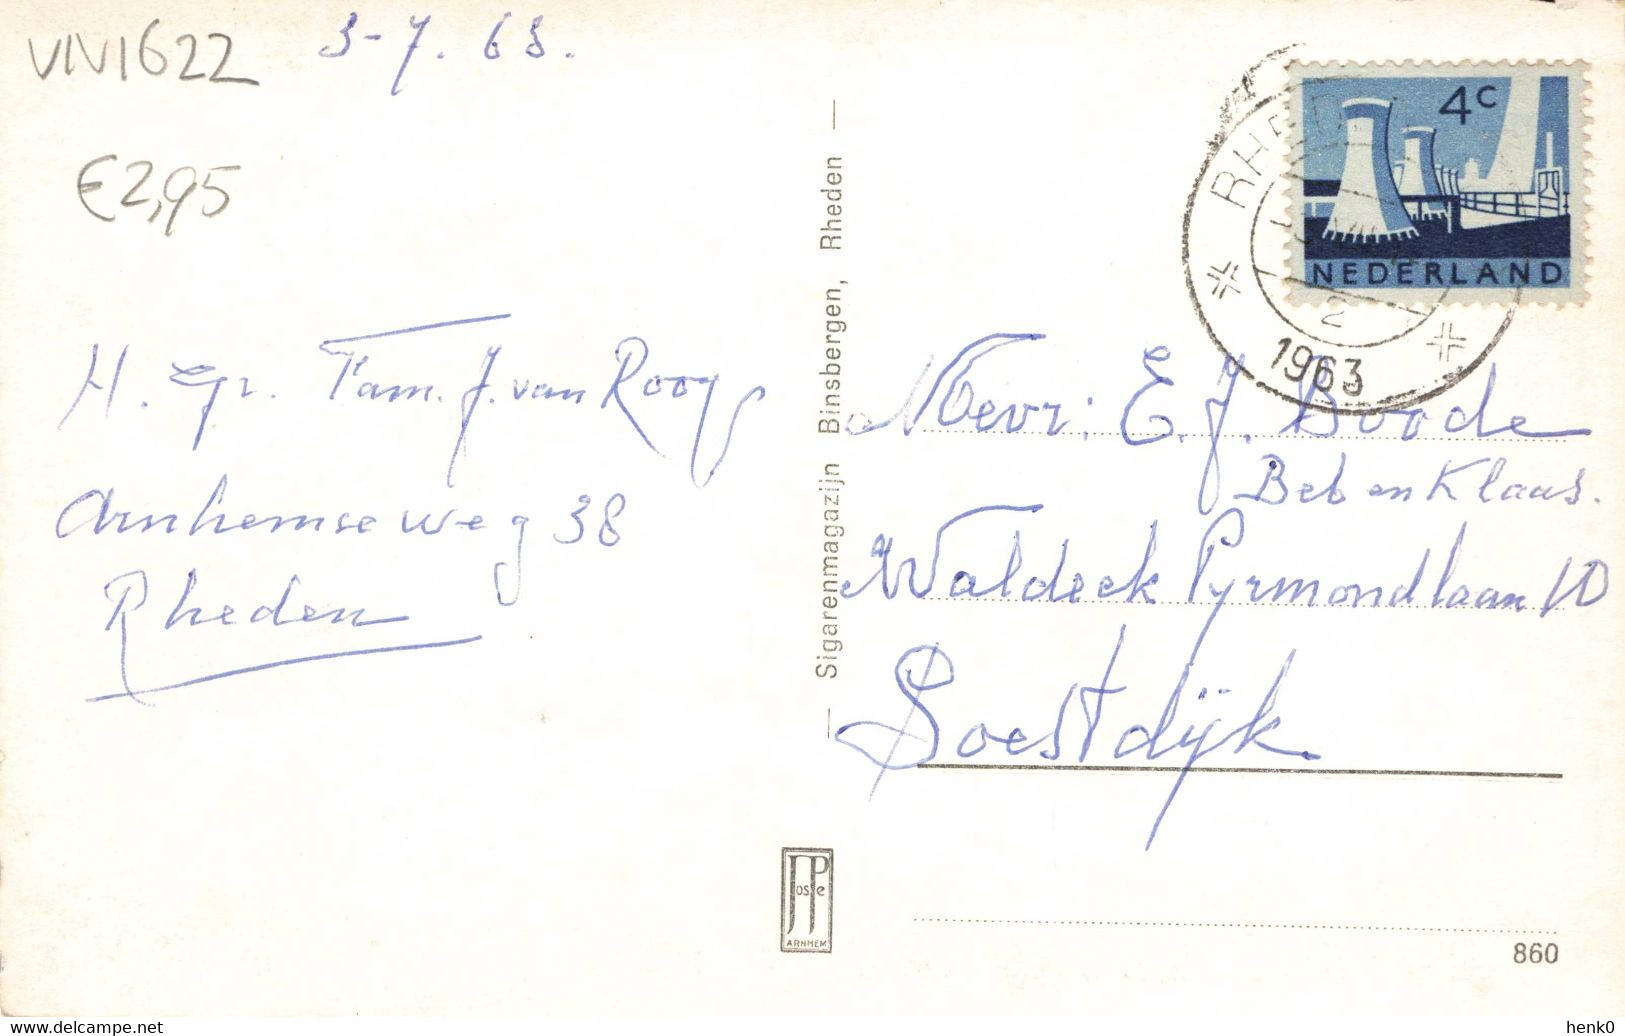 VIV1622
3-7.63.
€2,95
H. Gr. Fam. J. van Rooy
Arnhemseweg 38
Rheden
— Sigarenmagazijn Binsbergen, Rheden —
4c
NEDERLAND
RHEDEN
2
1963
Mevr: E. J. Doode
Beb en Klaas.
Waldeck Pyrmondlaan 10
Soestdijk.
JosPe
ARNHEM
860
www.delcampe.net
henk0